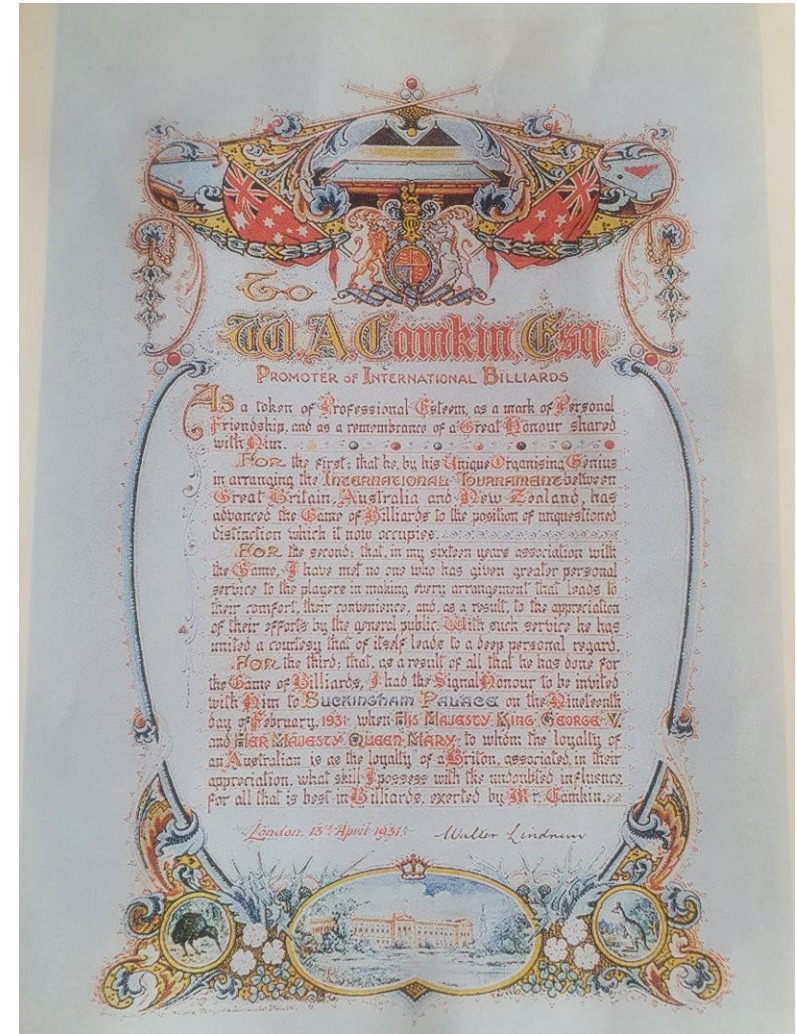 To
W. A. Camkin, Esq
PROMOTER OF INTERNATIONAL BILLIARDS
As a token of Professional Esteem, as a mark of Personal
Friendship, and as a remembrance of a Great Honour shared
with Him.
FOR the first; that he, by his Unique Organising Genius
in arranging the INTERNATIONAL TOURNAMENT between
Great Britain, Australia and New Zealand, has
advanced the Game of Billiards to the position of unquestioned
distinction which it now occupies.
FOR the second; that, in my sixteen years association with
the Game, I have met no one who has given greater personal
service to the players in making every arrangement that leads to
their comfort, their convenience, and, as a result, to the appreciation
of their efforts by the general public. With such service he has
united a courtesy that of itself leads to a deep personal regard.
FOR the third; that, as a result of all that he has done for
the Game of Billiards, I had the Signal Honour to be invited
with Him to BUCKINGHAM PALACE on the Nineteenth
day of February, 1931, when HIS MAJESTY KING GEORGE V.
and HER MAJESTY QUEEN MARY, to whom the loyalty of
an Australian is as the loyalty of a Briton, associated, in their
appreciation, what skill I possess with the undoubted influence,
for all that is best in Billiards, exerted by Mr. Camkin.
London. 13th April 1931. Walter Lindrum